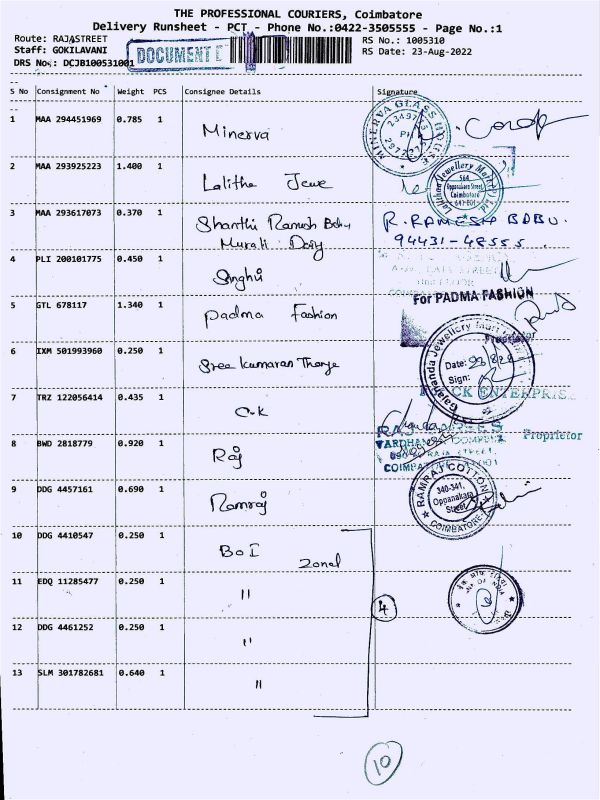 THE PROFESSIONAL COURIERS, Coimbatore
Delivery Runsheet - PCT - Phone No.:0422-3505555 - Page No.:1
Route: RAJASTREET RS No.: 1005310
Staff: GOKILAVANI DOCUMENT RS Date: 23-Aug-2022
DRS No.: DCJB100531001
S No Consignment No Weight PCS Consignee Details Signature
1 MAA 294451969 0.785 1 Minerva
MINERVA GLASS HOUSE
2 MAA 293925223 1.400 1 Lalitha Jewe
564
Oppanakara Street
Coimbatore
641-001
3 MAA 293617073 0.370 1 Shanthi Ramesh Babu R. RAMESH BABU.
Murali Dairy 94431-48555
4 PLI 200101775 0.450 1 Singhvi
For PADMA FASHION
5 GTL 678117 1.340 1 Padma Fashion
Proprietor
6 IXM 501993960 0.250 1 Sree Kumaran Thange
Gajananda Jewellery Mart
Date: 23/8/22
Sign:
7 TRZ 122056414 0.435 1 C.K
CK ENTERPRISE
8 BWD 2818779 0.920 1 Raj
VARDHAMAN COMPLEX Proprietor
RAJA STREET
COIMBATORE
9 DDG 4457161 0.690 1 Ramraj
RAMRAJ COTTON
340-341,
Oppanakara
Street
COIMBATORE
10 DDG 4410547 0.250 1 BoI Zonal
11 EDQ 11285477 0.250 1 "
4
12 DDG 4461252 0.250 1 "
13 SLM 301782681 0.640 1 "
10